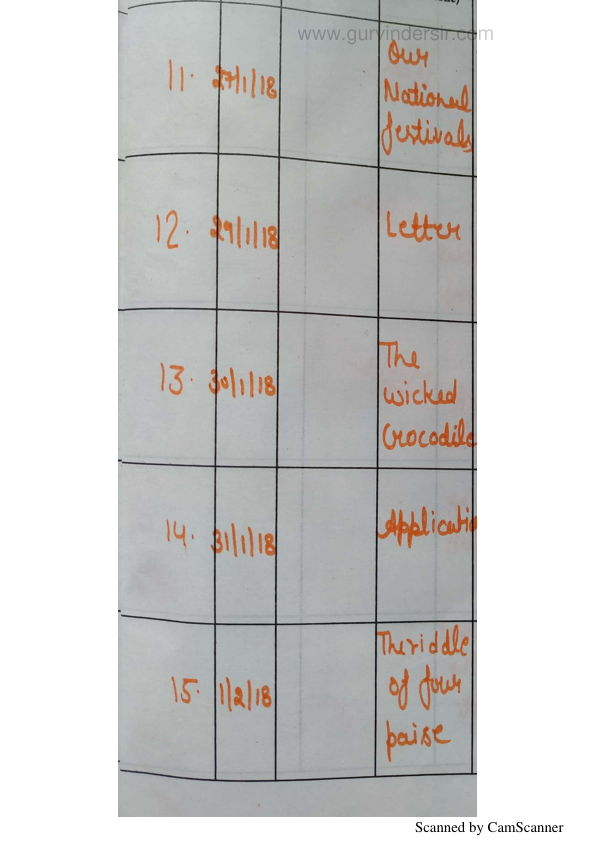 www.gurvindersir.com
11. 27/1/18 Our
National
festivals
12. 29/1/18 Letter
13. 30/1/18 The
wicked
Crocodile
14. 31/1/18 Applicatio
15. 1/2/18 The riddle
of four
paise
Scanned by CamScanner